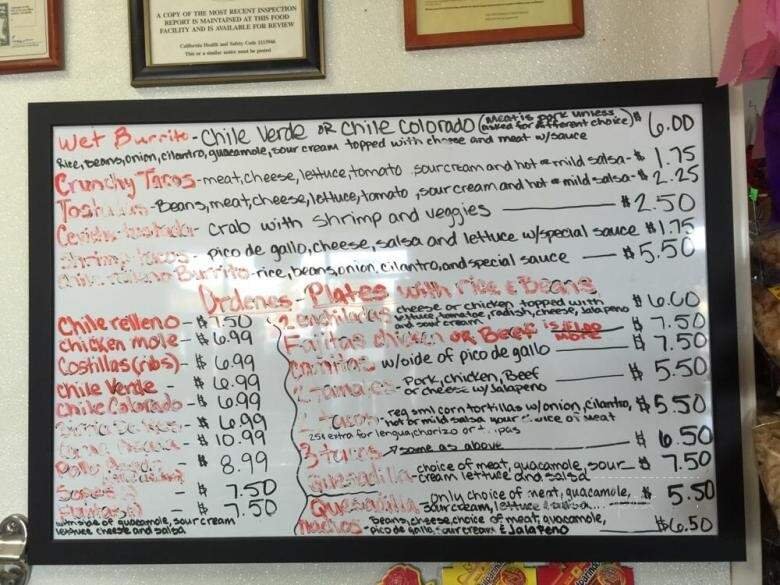 A COPY OF THE MOST RECENT INSPECTION
REPORT IS MAINTAINED AT THIS FOOD
FACILITY AND IS AVAILABLE FOR REVIEW
California Health and Safety Code
This or a similar notice must be posted
Wet Burrito - Chile Verde or Chile Colorado (Meat is pork unless asked for different choice) $6.00
Rice, beans, onion, cilantro, guacamole, sour cream topped with cheese and meat w/sauce
Crunchy Tacos - meat, cheese, lettuce, tomato, sour cream and hot or mild salsa - $1.75
Beans, meat, cheese, lettuce, tomato, sour cream and hot or mild salsa - $2.25
Crab with Shrimp and veggies $2.50
Tacos - pico de gallo, cheese, salsa and lettuce w/special sauce $1.75
Burrito - rice, beans, onion, cilantro, and special sauce - $5.50
Ordenes - Plates with rice & Beans
Chile relleno - $7.50
chicken mole - $6.99
Costillas (ribs) - $6.99
Chile Verde - $6.99
Chile Colorado - $6.99
$6.99
$10.99
$8.99
- $7.50
- $7.50
with side of guacamole, sour cream
lettuce cheese and salsa
2 Enchiladas cheese or chicken topped with $6.00
lettuce, tomatoe, radish, cheese, Jalapeno
and sour cream
Fajitas chicken or Beef is $1.00 more $7.50
carnitas w/side of pico de gallo $7.50
Tamales - Pork, chicken, Beef $5.50
or cheese w/Jalapeno
Tacos - reg sml corn tortillas w/onion, cilantro, $5.50
hot or mild salsa your choice of meat
25¢ extra for lengua, chorizo or
3 tacos same as above $6.50
Quesadilla - choice of meat, guacamole, sour $7.50
cream lettuce and salsa
Quesadilla - only choice of meat, guacamole, $5.50
sour cream, lettuce & salsa
Nachos - beans, cheese, choice of meat, guacamole, $6.50
pico de gallo, sour cream & Jalapeno